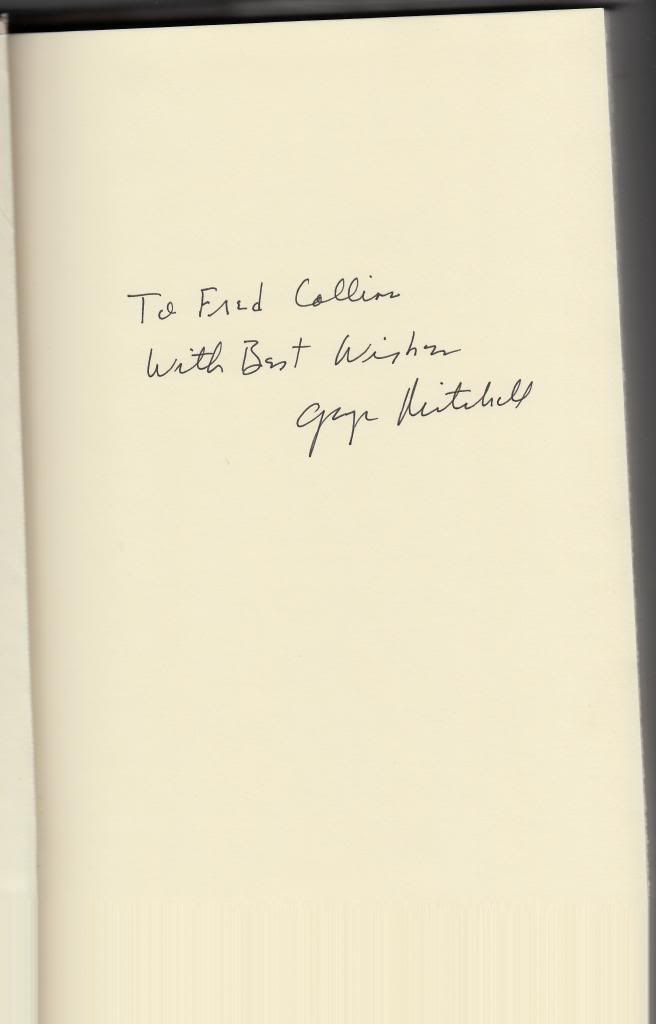 To Fred Collins
With Best Wishes
George Mitchell